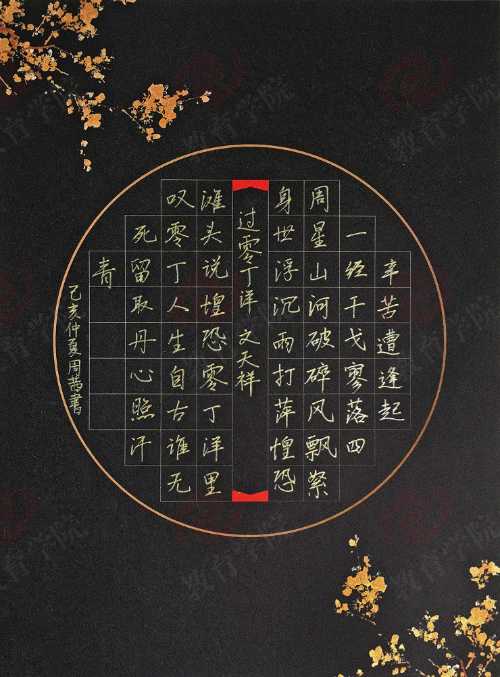 辛苦遭逢起
一经干戈寥落四
周星山河破碎风飘絮
身世浮沉雨打萍惶恐
过零丁洋 文天祥
滩头说惶恐零丁洋里
叹零丁人生自古谁无
死留取丹心照汗
青
己亥仲夏周書
教育学院